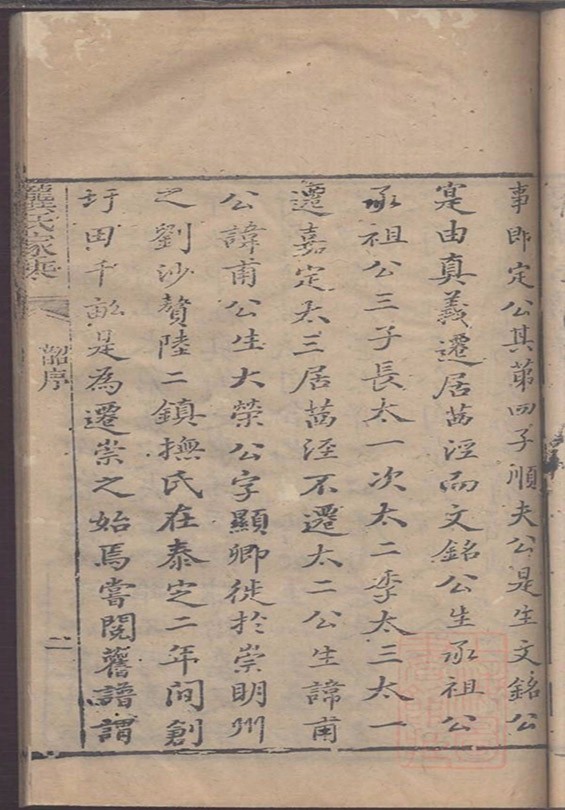 事即定公其第四子順夫公是生文銘公
寔由真義遷居茜涇而文銘公生承祖公
承祖公三子長太一次太二季太三太一
遷嘉定太三居茜涇不遷太二公生諱甫
公諱甫公生大榮公字顯卿徙於崇明州
之劉沙贅陸二鎮撫氏在泰定二年間創
圩田千畝是為遷崇之始焉嘗閱舊譜謂
龔氏家乘
韶序
二